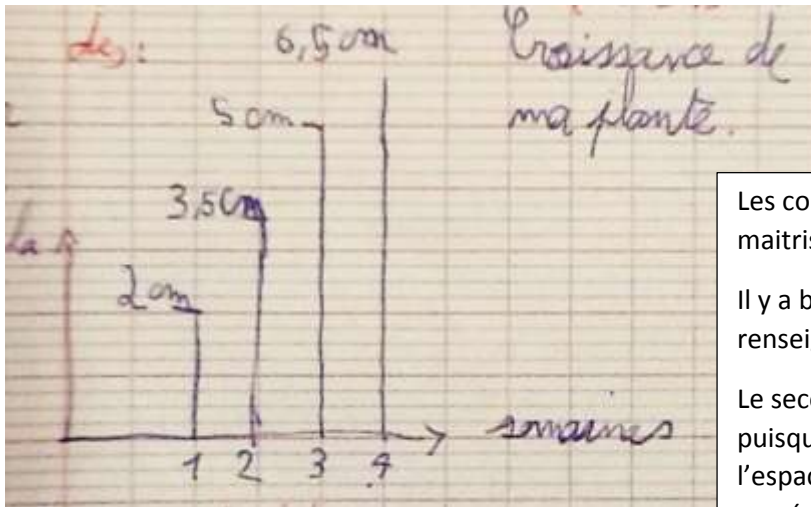 des:
6,5 cm
Croissance de
ma plante.
5 cm
3,5 cm
La
2 cm
semaines
1 2 3 4
Les co
maitris
Il y a b
rensei
Le seco
puisqu
l'espac